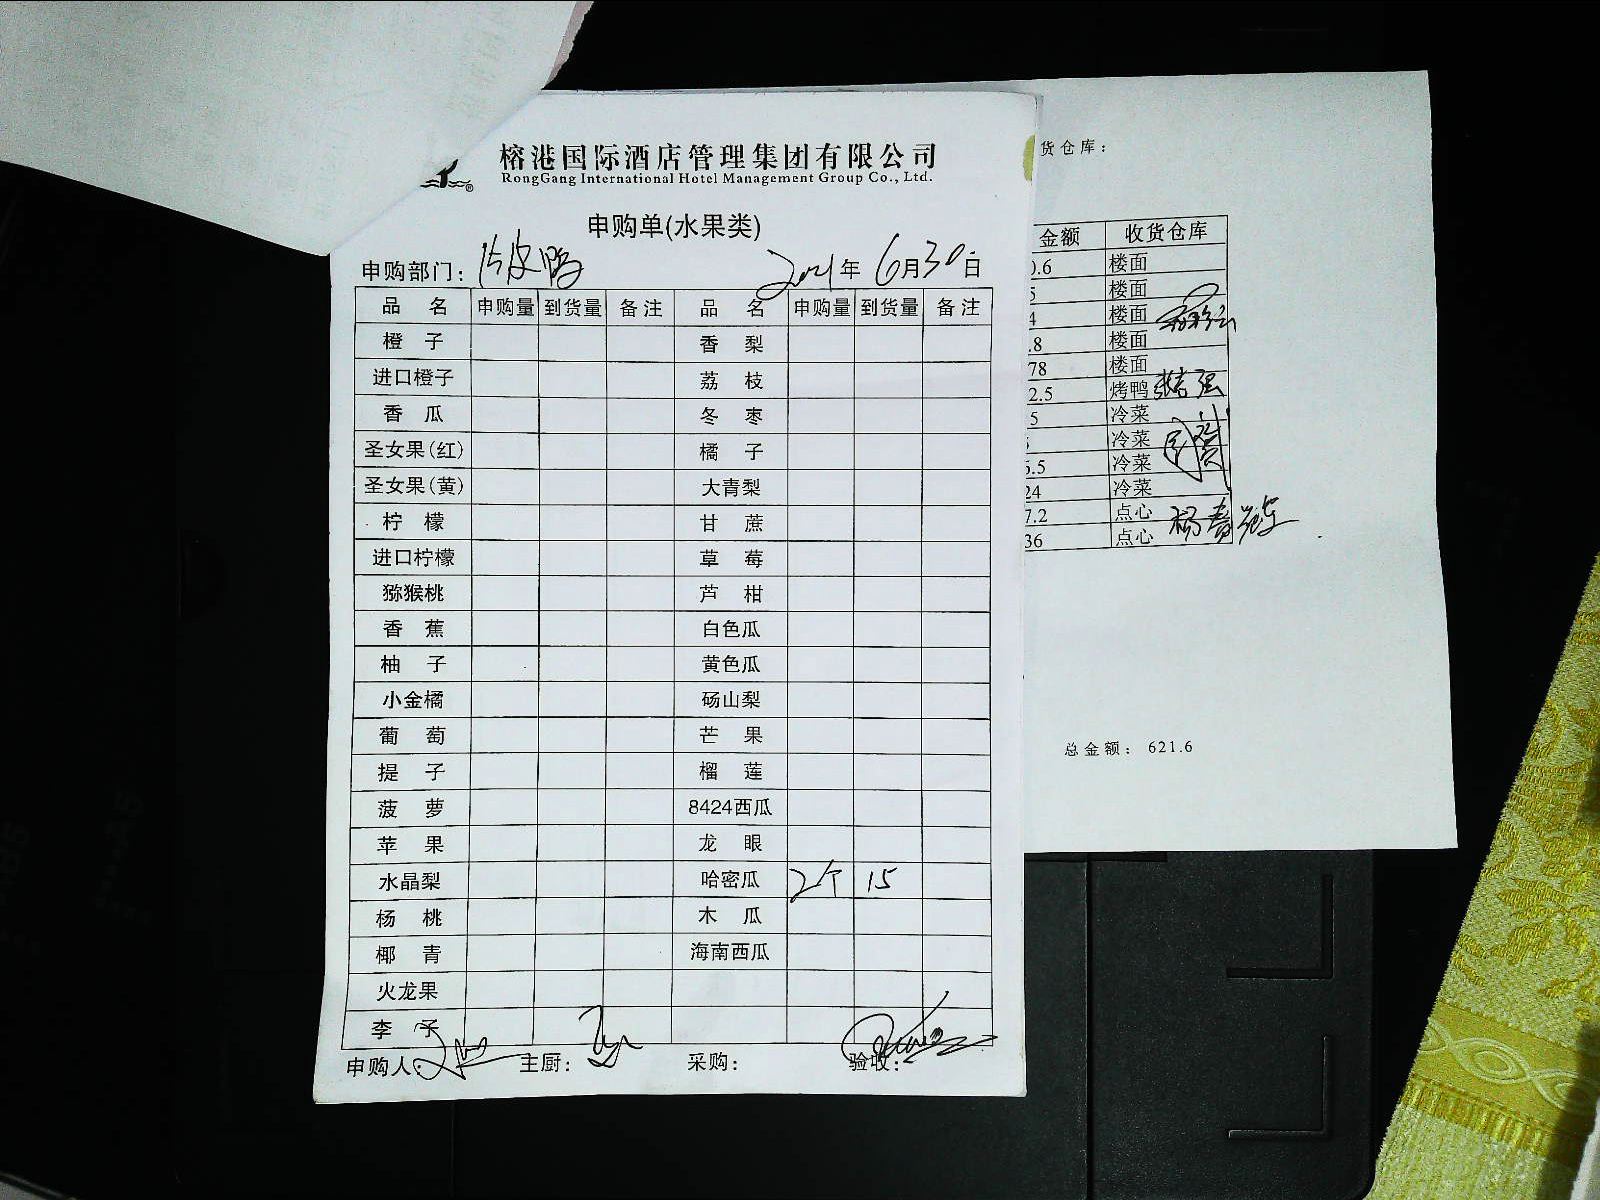 榕港国际酒店管理集团有限公司
RongGang International Hotel Management Group Co., Ltd.
申购单(水果类)
申购部门: 片皮鸭 2021年 6月30日
品 名 申购量 到货量 备注 品 名 申购量 到货量 备注
橙 子 香 梨
进口橙子 荔 枝
香 瓜 冬 枣
圣女果(红) 橘 子
圣女果(黄) 大青梨
柠 檬 甘 蔗
进口柠檬 草 莓
猕猴桃 芦 柑
香 蕉 白色瓜
柚 子 黄色瓜
小金橘 砀山梨
葡 萄 芒 果
提 子 榴 莲
菠 萝 8424西瓜
苹 果 龙 眼
水晶梨 哈密瓜 2个 15
杨 桃 木 瓜
椰 青 海南西瓜
火龙果
李 子
申购人: 主厨: 采购: 验收:
货仓库:
金额 收货仓库
0.6 楼面
5 楼面
4 楼面
.8 楼面
78 楼面
2.5 烤鸭
5 冷菜
冷菜
6.5 冷菜
24 冷菜
7.2 点心
36 点心
总金额: 621.6